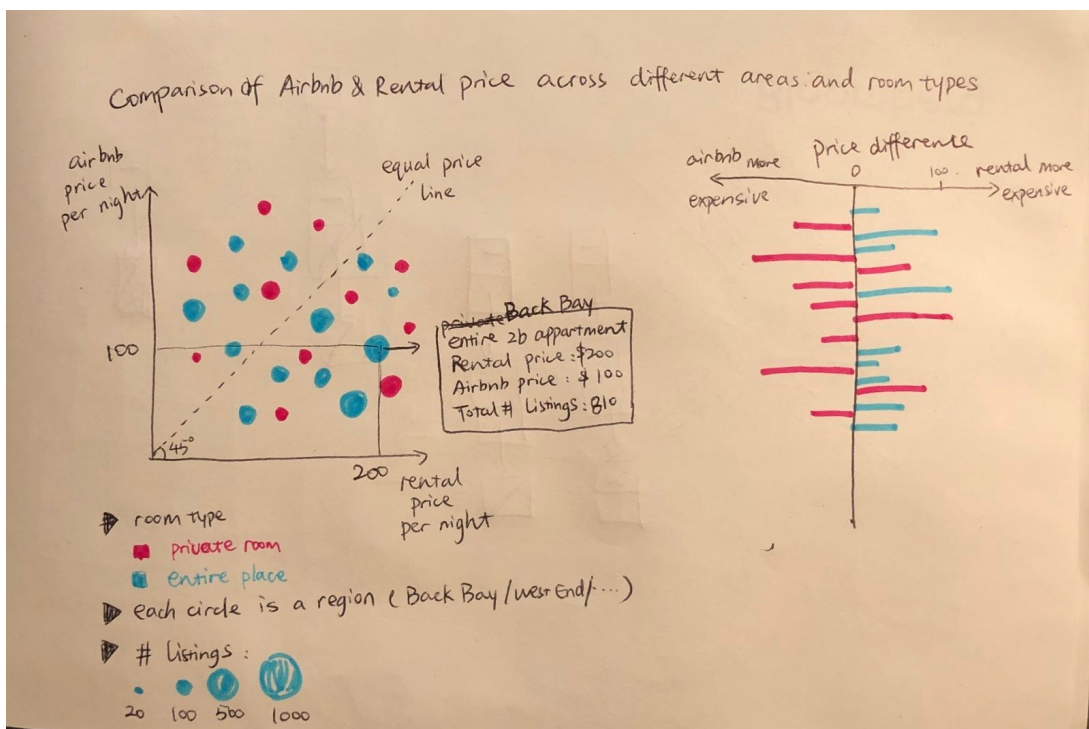 Comparison of Airbnb & Rental price across different areas and room types
airbnb
price
per night
equal price
line
100
45°
200
rental
price
per night
private Back Bay
entire 2b appartment
Rental price : $200
Airbnb price : $100
Total # Listings : 810
Price difference
airbnb more
expensive
0
100
rental more
expensive
room type
private room
entire place
each circle is a region ( Back Bay / West End / .... )
# Listings :
20 100 500 1000